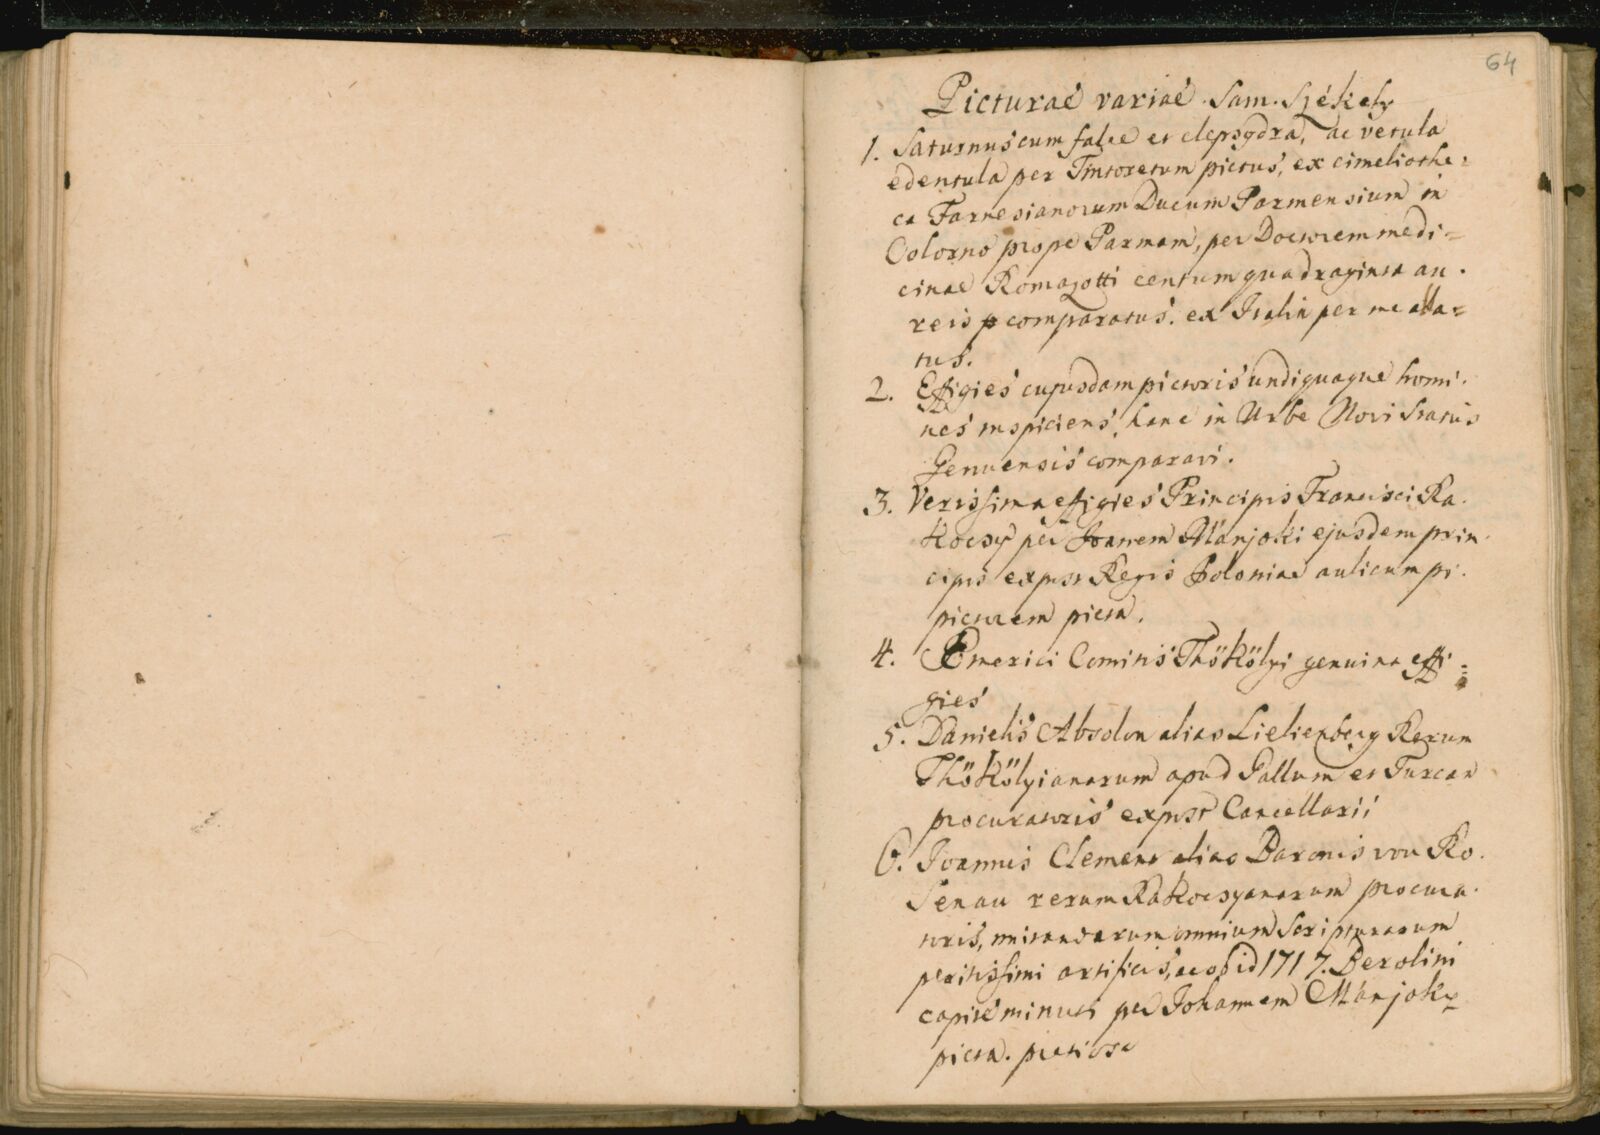 64
Picturae variae Sam. Székely
1. Saturnus cum falce et clepsydra, ac vetula
edentula per Tintoretum pictus, ex cimeliothe=
ca Farnesianorum Ducum Parmensium in
Colorno prope Parmam, per Doctorem medi=
cinae Romazotti centum quadraginta au.
reis comparatus. ex Italia per me alla=
tus.
2. Effigies cujusdam pictoris undiquaque homi.
nes inspiciens, hanc in Urbe Novi Status
Genuensis comparavi.
3. Verissima effigies Principis Francisci Ra.
koczy per Joannem Mányoki ejusdem prin.
cipis expost Regis Poloniae aulicum pi.
pictorem picta.
4. Emerici Comitis Thököly genuina effi=
gies
5. Danielis Absolon alias Lielienberg Rerum
Thökölyianarum apud Gallum et Turcan
procuratoris expost Cancellarii
6. Joannis Clement alias Baronis von Ro.
senau rerum Rakoczyanarum procura.
toris, imitandarum omnium Scripturarum
peritissimi artificis, ac ob id 1717. Berolini
capite minuti per Johannem Mányoky
picta. pretiose